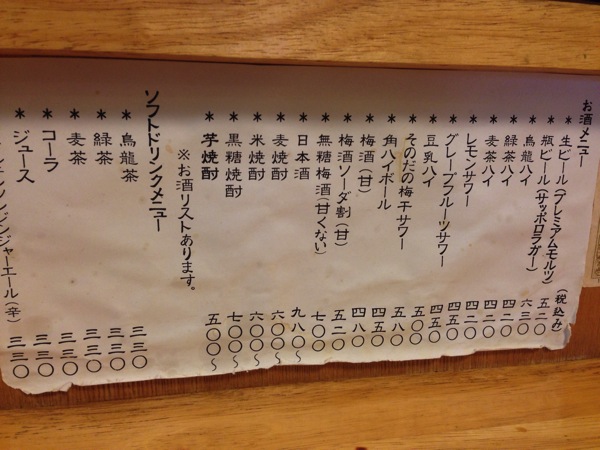 お酒メニュー
(税込み)
*生ビール(プレミアムモルツ) 五二〇
*瓶ビール(サッポロラガー) 六三〇
*烏龍ハイ 四二〇
*緑茶ハイ 四二〇
*麦茶ハイ 四二〇
*レモンサワー 四五〇
*グレープフルーツサワー 四五〇
*豆乳ハイ 五〇〇
*そのだの梅干サワー 五八〇
*角ハイボール 四五〇
*梅酒(甘) 四八〇
*梅酒ソーダ割(甘) 五二〇
*無糖梅酒(甘くない) 七〇〇
*日本酒 九八〇〜
*麦焼酎 六〇〇〜
*米焼酎 六〇〇〜
*黒糖焼酎 七〇〇〜
*芋焼酎 五〇〇〜
※お酒リストあります。
ソフトドリンクメニュー
*烏龍茶 三三〇
*緑茶 三三〇
*麦茶 三三〇
*コーラ 三三〇
*ジュース 三三〇
ジンジャーエール(辛) 三三〇